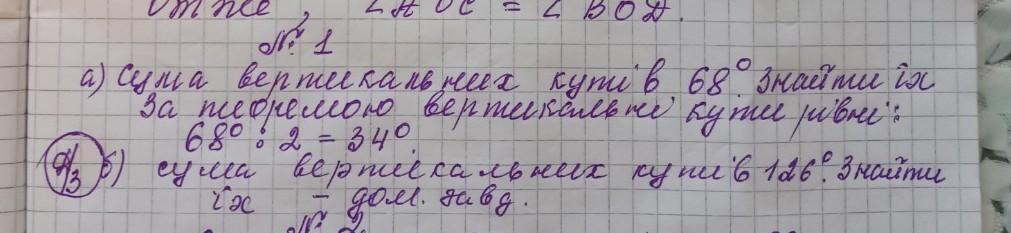 Отже, ∠AOC = ∠BOД.
№ 1
а) Сума вертикальних кутів 68°. Знайти їх
За теоремою вертикальні кути рівні:
68° : 2 = 34°
Д/З б) сума вертикальних кутів 126°. Знайти
їх – дом. завд.
№ 2